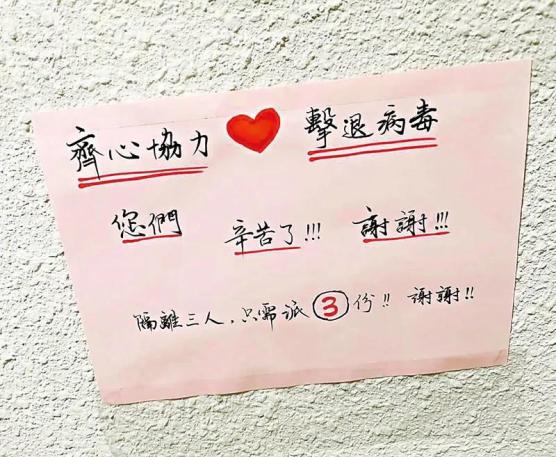 齊心協力 ❤ 擊退病毒
您們 辛苦了!!! 謝謝!!!
隔離三人，只需派③份!! 謝謝!!